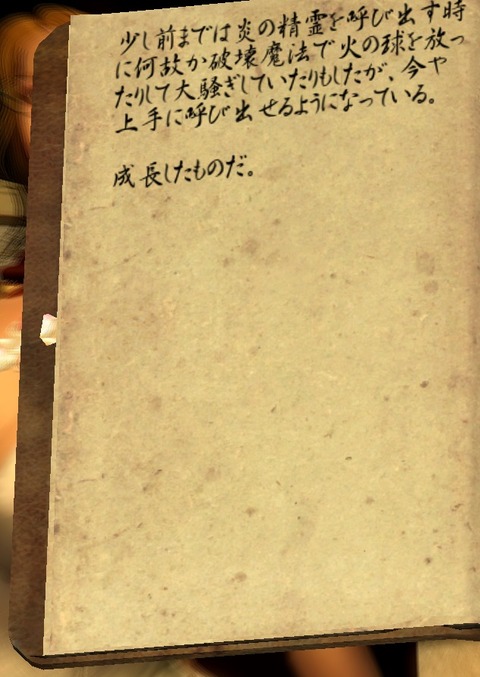 少し前までは炎の精霊を呼び出す時
に何故か破壊魔法で火の球を放っ
たりして大騒ぎしていたりもしたが、今や
上手に呼び出せるようになっている。
成長したものだ。